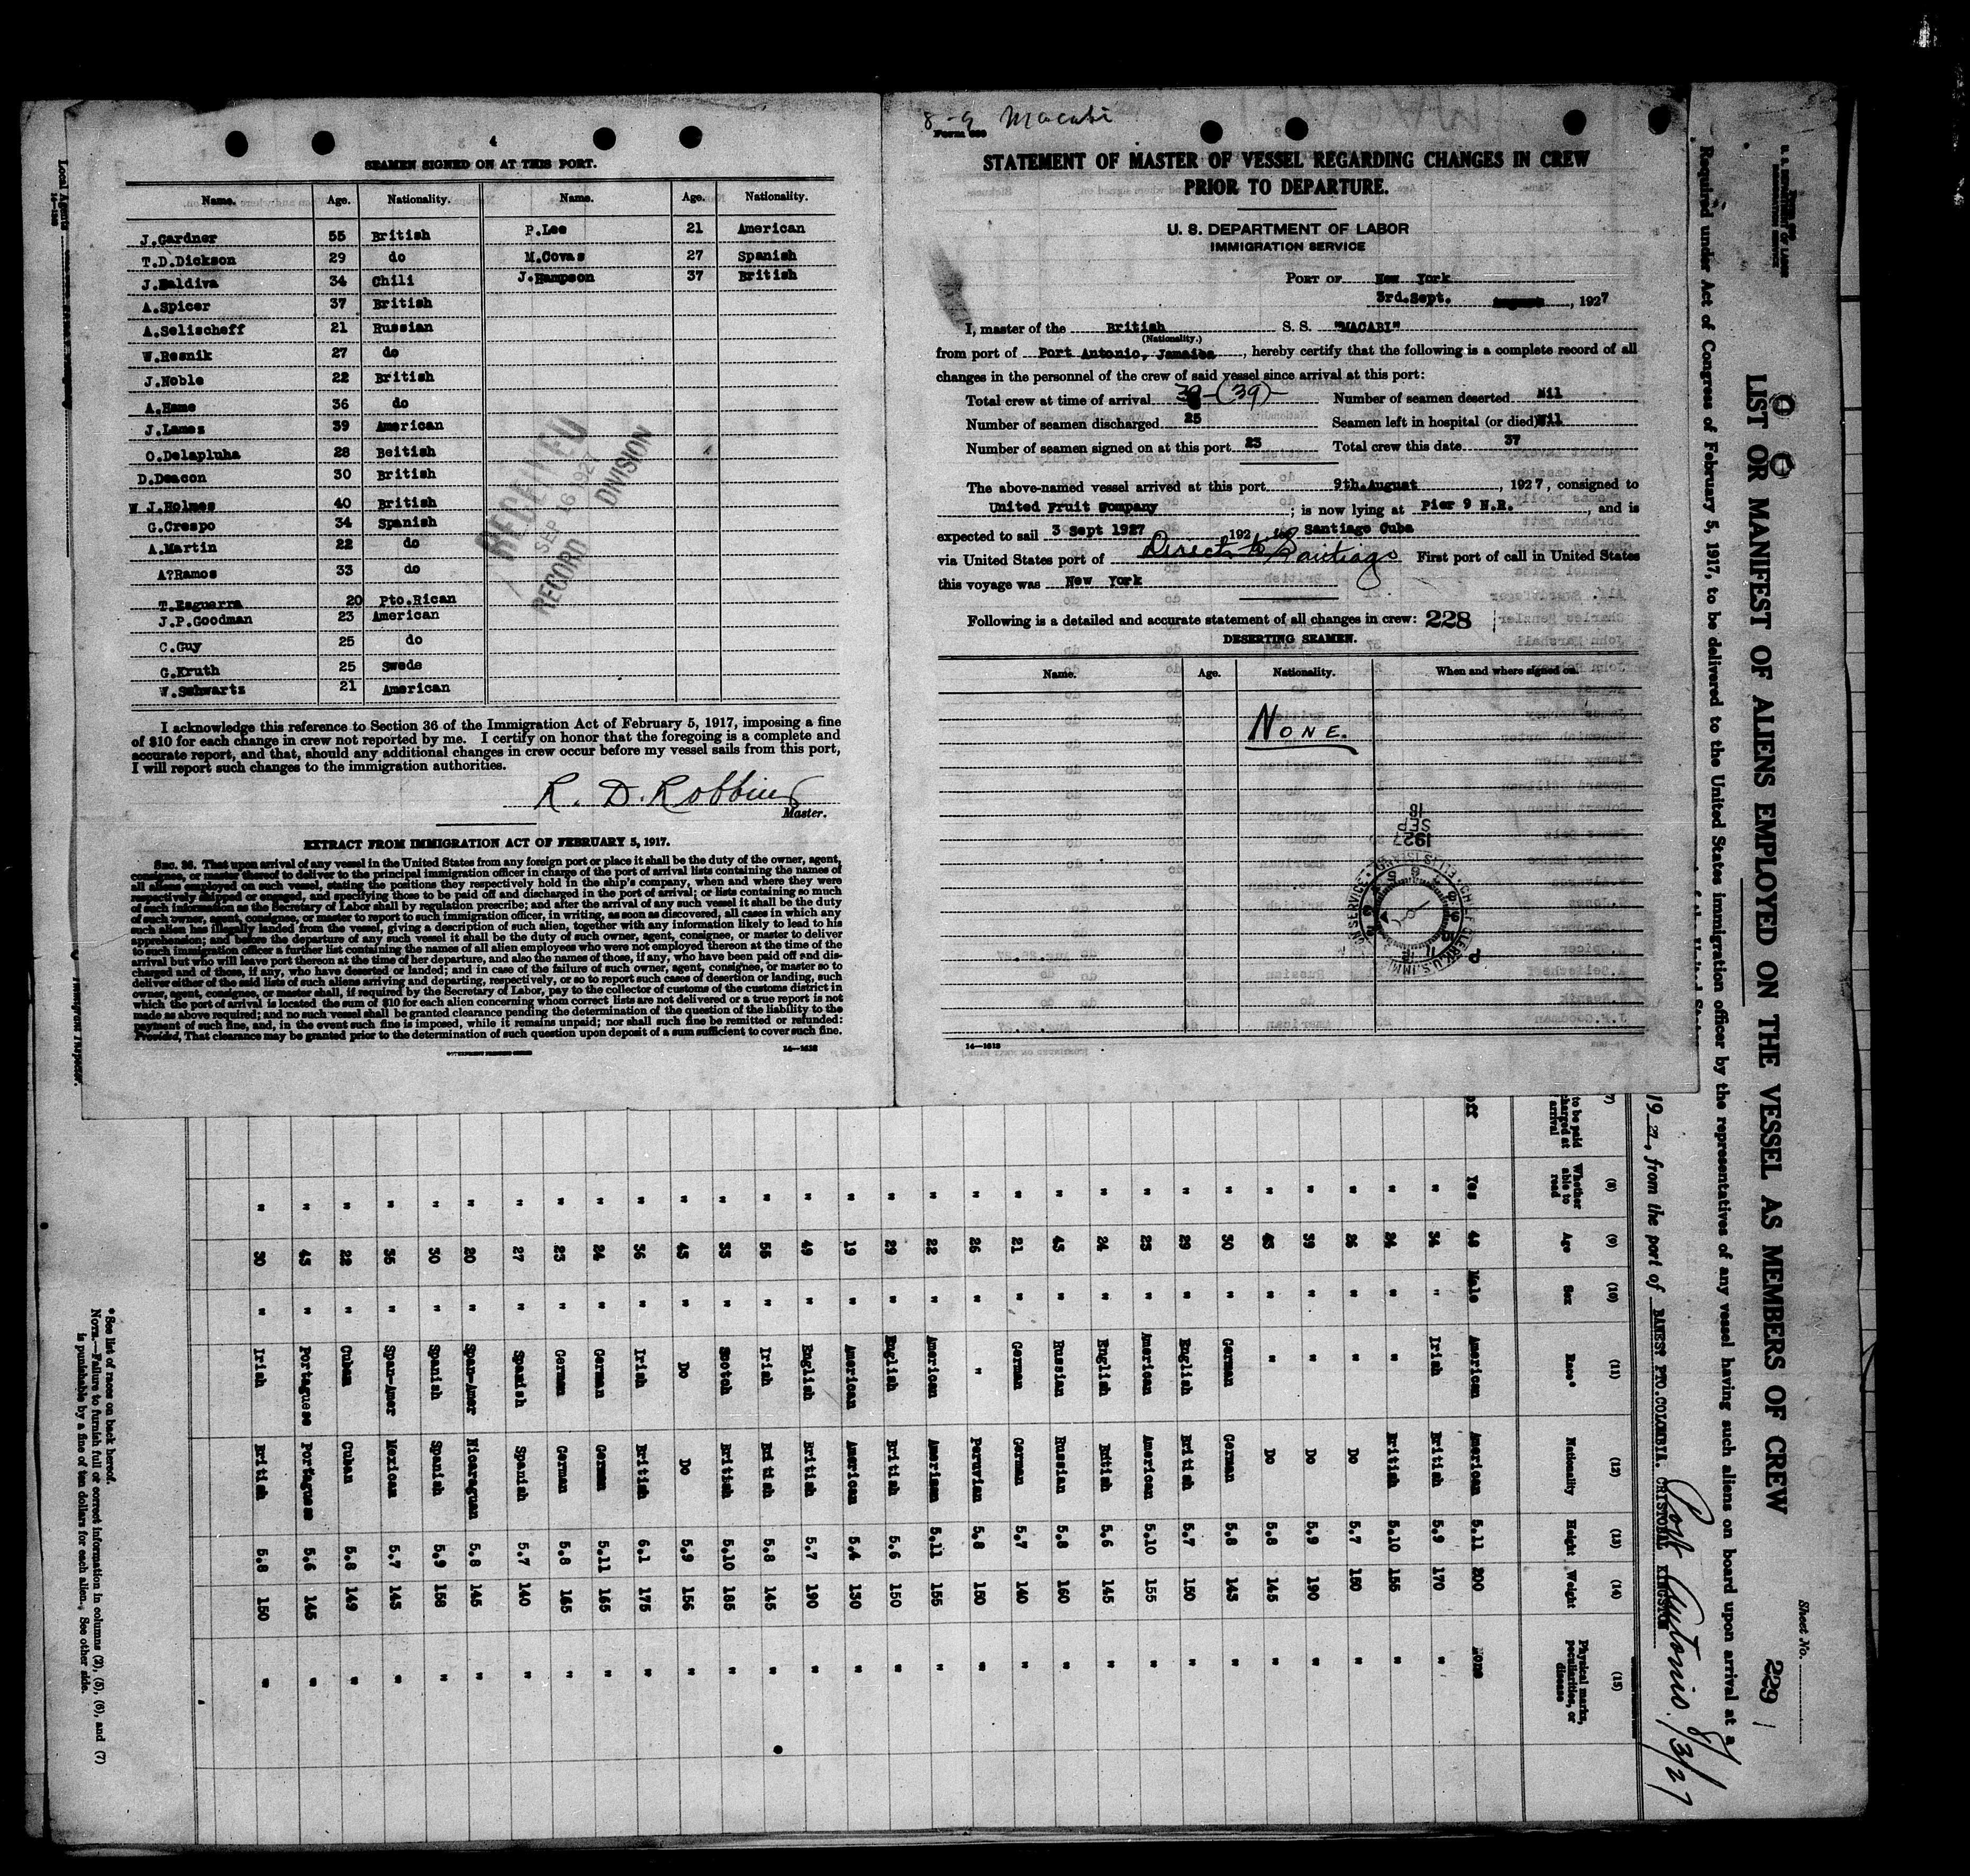 4
SEAMEN SIGNED ON AT THIS PORT.
Name. Age. Nationality. Name. Age. Nationality.
J.Gardner 55 British P.Lee 21 American
T.D.Dickson 29 do M.Covas 27 Spanish
J.Baldiva 34 Chili J.Hampson 37 British
A.Spicer 37 British
A.Selischeff 21 Russian
W.Resnik 27 do
J.Noble 22 British
A.Hame 36 do
J.Lamez 39 American
O.Delapluha 28 Beitish
D.Deacon 30 British
W J.Holmes 40 British
G.Crespo 34 Spanish
A.Martin 22 do
A?Ramos 33 do
T.Esguerra 20 Pto.Rican
J.P.Goodman 23 American
C.Guy 25 do
G.Kruth 25 Swede
W.Schwartz 21 American
RECEIVED
SEP 16 1927
RECORD DIVISION
I acknowledge this reference to Section 36 of the Immigration Act of February 5, 1917, imposing a fine
of $10 for each change in crew not reported by me. I certify on honor that the foregoing is a complete and
accurate report, and that, should any additional changes in crew occur before my vessel sails from this port,
I will report such changes to the immigration authorities.
R. D. Robbins
Master.
EXTRACT FROM IMMIGRATION ACT OF FEBRUARY 5, 1917.
SEC. 36. That upon arrival of any vessel in the United States from any foreign port or place it shall be the duty of the owner, agent,
consignee, or master thereof to deliver to the principal immigration officer in charge of the port of arrival lists containing the names of
all aliens employed on such vessel, stating the positions they respectively hold in the ship's company, when and where they were
respectively shipped or engaged, and specifying those to be paid off and discharged in the port of arrival; or lists containing so much
of such information as the Secretary of Labor shall by regulation prescribe; and after the arrival of any such vessel it shall be the duty
of such owner, agent, consignee, or master to report to such immigration officer, in writing, as soon as discovered, all cases in which any
such alien has illegally landed from the vessel, giving a description of such alien, together with any information likely to lead to his
apprehension; and before the departure of any such vessel it shall be the duty of such owner, agent, consignee, or master to deliver
to such immigration officer a further list containing the names of all alien employees who were not employed thereon at the time of the
arrival but who will leave port thereon at the time of her departure, and also the names of those, if any, who have been paid off and dis-
charged and of those, if any, who have deserted or landed; and in case of the failure of such owner, agent, consignee, or master so to
deliver either of the said lists of such aliens arriving and departing, respectively, or so to report such cases of desertion or landing, such
owner, agent, consignee, or master shall, if required by the Secretary of Labor, pay to the collector of customs of the customs district in
which the port of arrival is located the sum of $10 for each alien concerning whom correct lists are not delivered or a true report is not
made as above required; and no such vessel shall be granted clearance pending the determination of the question of the liability to the
payment of such fine, and, in the event such fine is imposed, while it remains unpaid; nor shall such fine be remitted or refunded:
Provided, That clearance may be granted prior to the determination of such question upon deposit of a sum sufficient to cover such fine.
GOVERNMENT PRINTING OFFICE 14—1618
8-9 Macabi
Form 680
STATEMENT OF MASTER OF VESSEL REGARDING CHANGES IN CREW
PRIOR TO DEPARTURE.
U. S. DEPARTMENT OF LABOR
IMMIGRATION SERVICE
PORT OF New York
3rd.Sept. , 1927
I, master of the British S. S. "MACABI"
(Nationality.)
from port of Port Antonio, Jamaica, hereby certify that the following is a complete record of all
changes in the personnel of the crew of said vessel since arrival at this port:
Total crew at time of arrival 39-(39)- Number of seamen deserted Nil
Number of seamen discharged 25 Seamen left in hospital (or died) Nil
Number of seamen signed on at this port 23 Total crew this date 37
The above-named vessel arrived at this port 9th.August, 1927, consigned to
United Fruit Company; is now lying at Pier 9 N.R., and is
expected to sail 3 Sept 1927 192 for Santiago Cuba
via United States port of Direct to Santiago First port of call in United States
this voyage was New York
Following is a detailed and accurate statement of all changes in crew: 228
DESERTING SEAMEN.
Name. Age. Nationality. When and where signed on.
NONE.
1927
SEP
16
CHIEF CLERK U.S. IMM
14—1618
Sheet No.
229
LIST OR MANIFEST OF ALIENS EMPLOYED ON THE VESSEL AS MEMBERS OF CREW
Required under Act of Congress of February 5, 1917, to be delivered to the United States immigration officer by the representatives of any vessel having such aliens on board upon arrival at a
Port Antonio. 8/3/27
19 27, from the port of BANES? PTO.COLOMBIA. CRISTOBAL KINGSTON
(7) (8) (9) (10) (11) (12) (13) (14) (15)
to be paid
charged at
arrival Whether able to read Age Sex Race* Nationality Height Weight Physical marks, peculiarities, or disease
off Yes 48 Male American American 5.11 200 None
" 34 " Irish British 5.9 170 "
" 24 " " British 5.10 155 "
" 26 " " Do 5.7 150 "
" 39 " " Do 5.9 190 "
" 43 " " Do 5.8 145 "
" 30 " German German 5.8 143 "
" 29 " English British 5.7 150 "
" 23 " American American 5.10 155 "
" 24 " English British 5.6 145 "
" 43 " Russian Russian 5.8 160 "
" 21 " German German 5.7 140 "
" 26 " " Peruvian 5.8 150 "
" 22 " American American 5.11 155 "
" 29 " English British 5.6 150 "
" 19 " American American 5.4 130 "
" 49 " English British 5.7 190 "
" 55 " Irish British 5.8 145 "
" 33 " Scotch British 5.10 185 "
" 43 " Do Do 5.9 156 "
" 36 " Irish British 6.1 175 "
" 24 " German German 5.11 165 "
" 23 " German German 5.8 165 "
" 27 " Spanish Spanish 5.7 140 "
" 20 " Span-Amer Nicaraguan 5.8 145 "
" 30 " Spanish Spanish 5.9 158 "
" 35 " Span-Amer Mexican 5.7 143 "
" 22 " Cuban Cuban 5.8 149 "
" 45 " Portaguese Portaguese 5.6 145 "
" 30 " Irish British 5.8 150 "
*See list of races on back hereof.
NOTE.—Failure to furnish full or correct information in columns (2), (5), (6), and (7)
is punishable by a fine of ten dollars for each alien. See other side.
Local Agents
Immigrant Inspector.